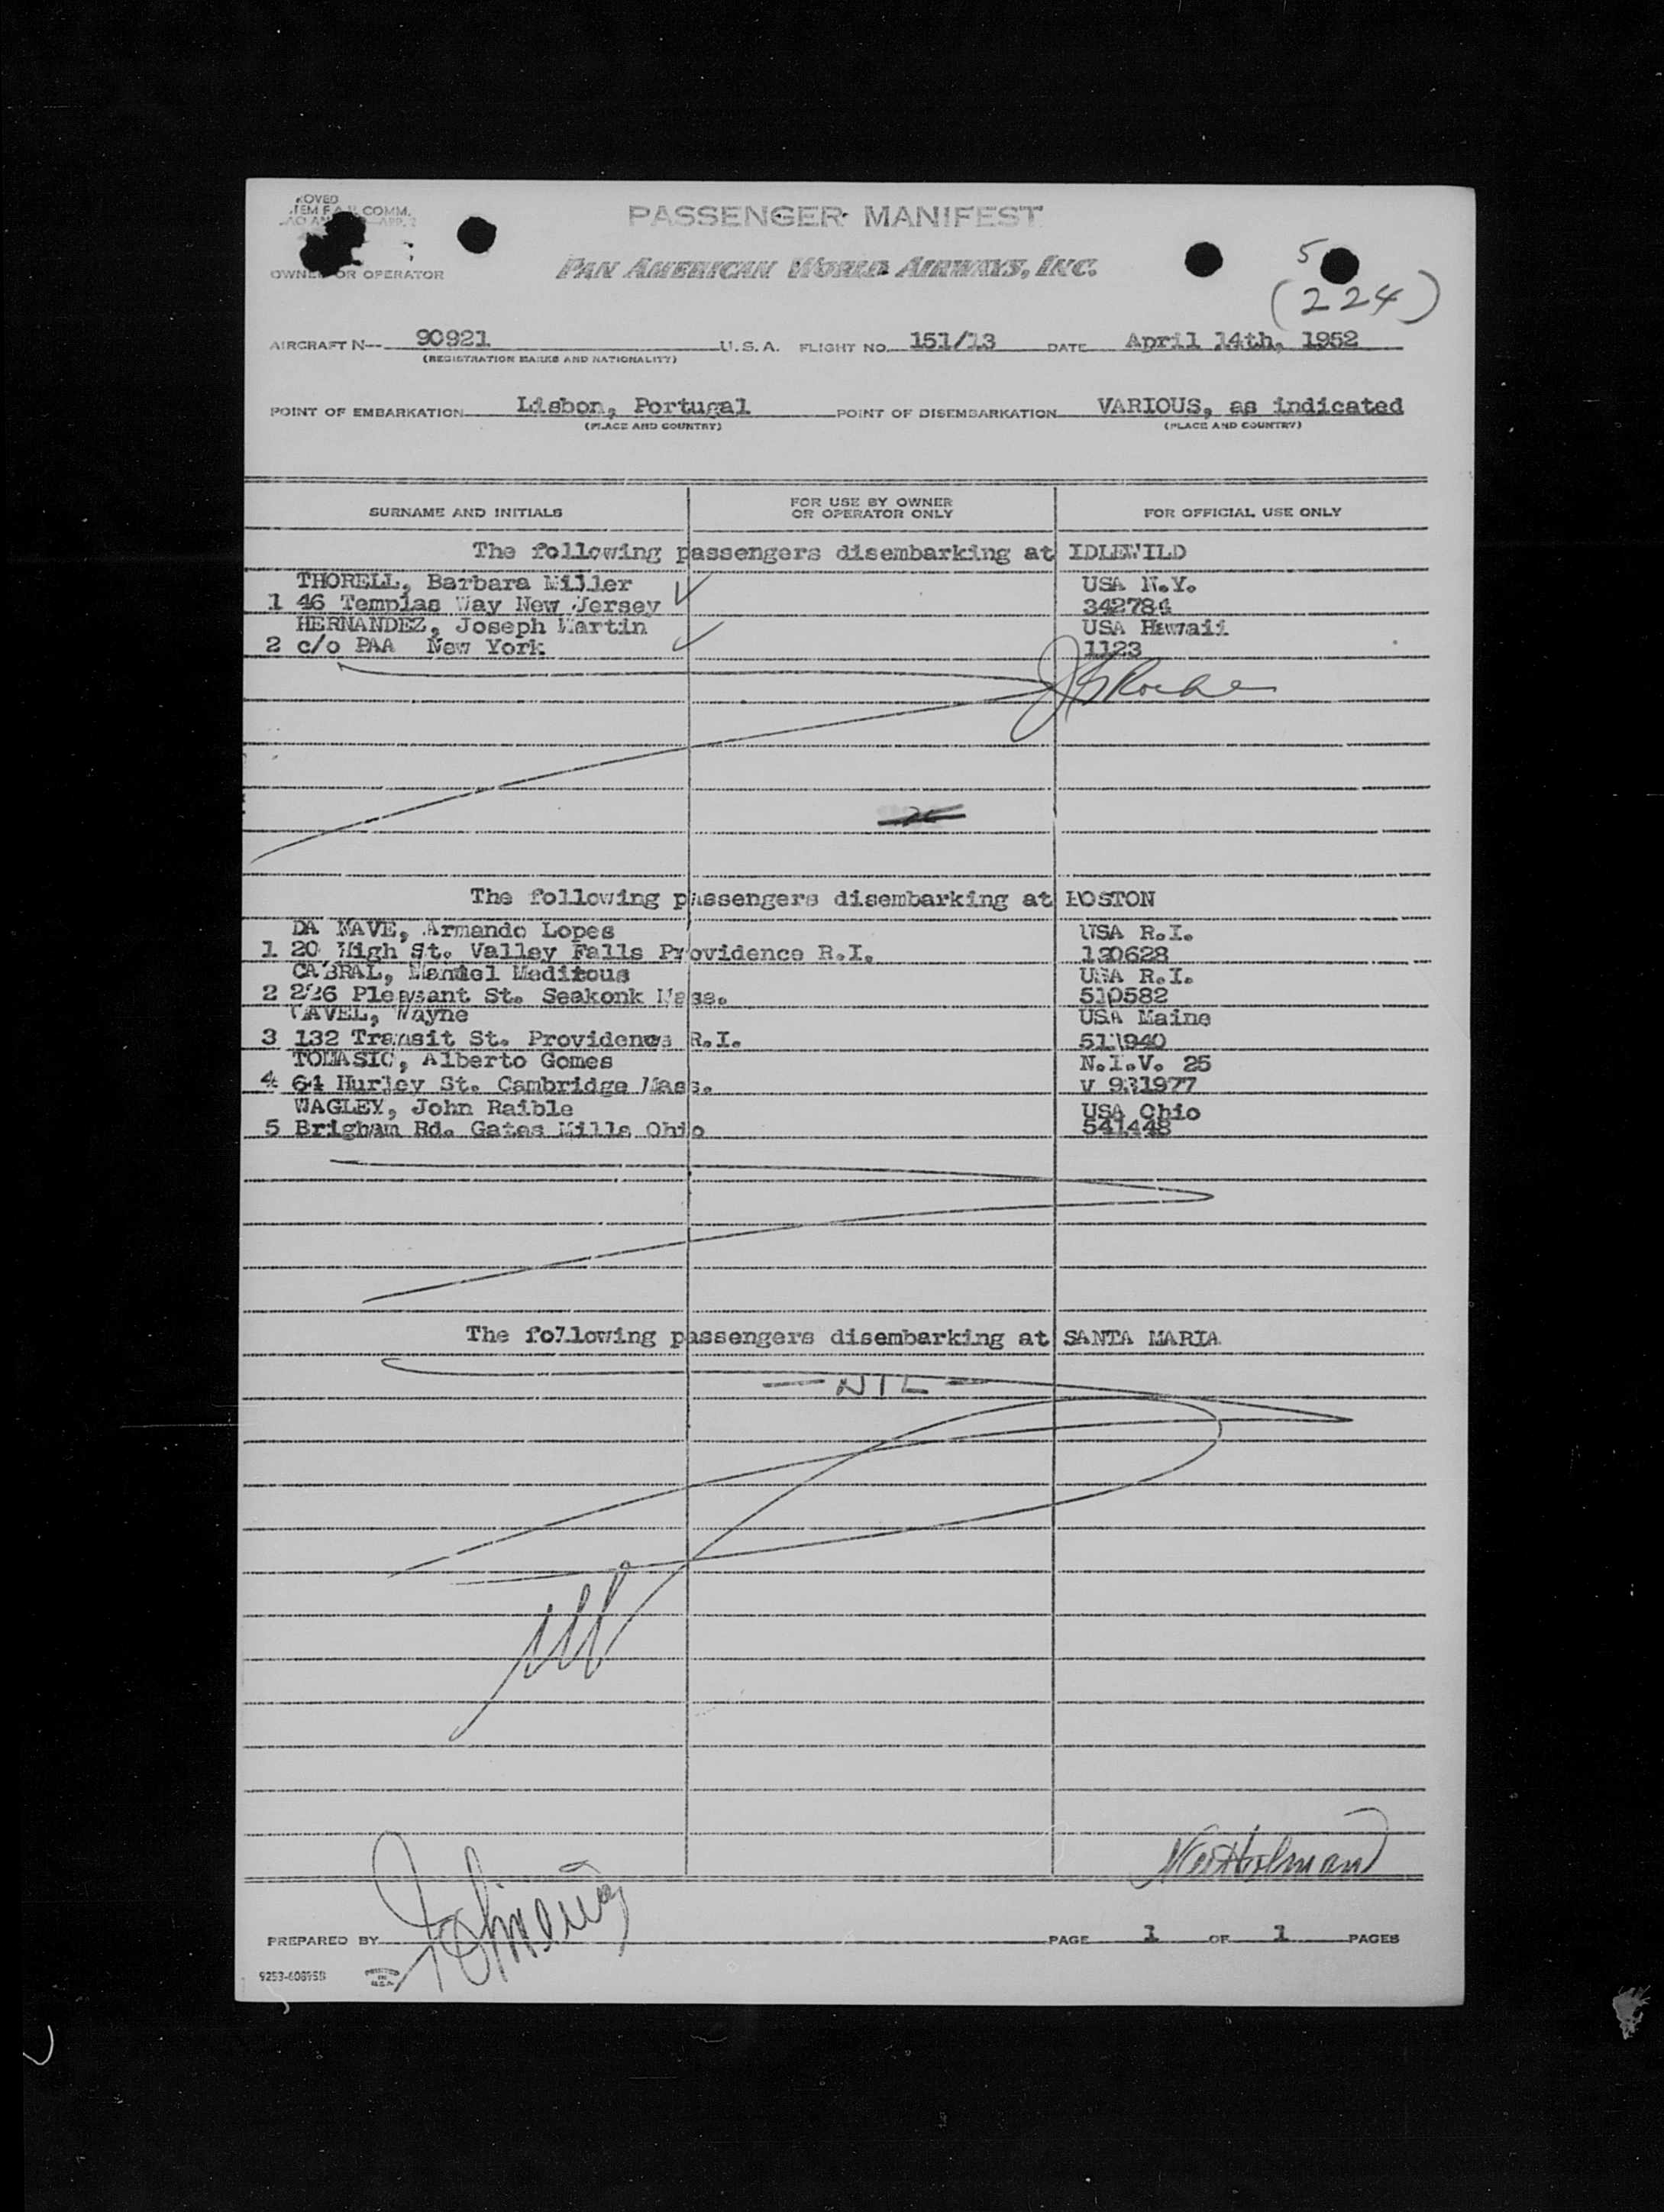 PASSENGER MANIFEST
COMM.
PAN AMERICAN WORLD AIRWAYS, INC.
OWNER OR OPERATOR
5
(224)
AIRCRAFT N-- 90921 U.S.A. FLIGHT NO. 151/13 DATE April 14th, 1952
(REGISTRATION MARKS AND NATIONALITY)
POINT OF EMBARKATION Lisbon, Portugal POINT OF DISEMBARKATION VARIOUS, as indicated
(PLACE AND COUNTRY) (PLACE AND COUNTRY)
SURNAME AND INITIALS FOR USE BY OWNER OR OPERATOR ONLY FOR OFFICIAL USE ONLY
The following passengers disembarking at IDLEWILD
THORELL, Barbara Miller USA N.Y.
1 46 Templas Way New Jersey 342784
HERNANDEZ, Joseph Martin USA Hawaii
2 c/o PAA New York 1123
The following passengers disembarking at BOSTON
DA NAVE, Armando Lopes USA R.I.
1 20 High St. Valley Falls Providence R.I. 130628
CABRAL, Manuel USA R.I.
2 226 Pleasant St. Seekonk Mass. 510582
Wayne USA Maine
3 132 Transit St. Providence R.I. 511940
TOMASIC, Alberto Gomes N.I.V. 25
4 64 Hurley St. Cambridge Mass. V 931977
WAGLEY, John Raible USA Ohio
5 Brigham Rd. Gates Mills Ohio 541448
The following passengers disembarking at SANTA MARIA
— NIL —
PREPARED BY PAGE 1 OF 1 PAGES
PRINTED IN U.S.A.